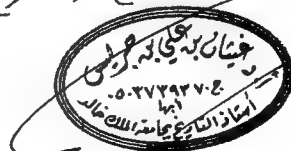 د. غيثان بن علي بن جريس
ج. ٠٥٠٣٧٣٩٣٧٠
أبها
أستاذ التاريخ بجامعة الملك خالد